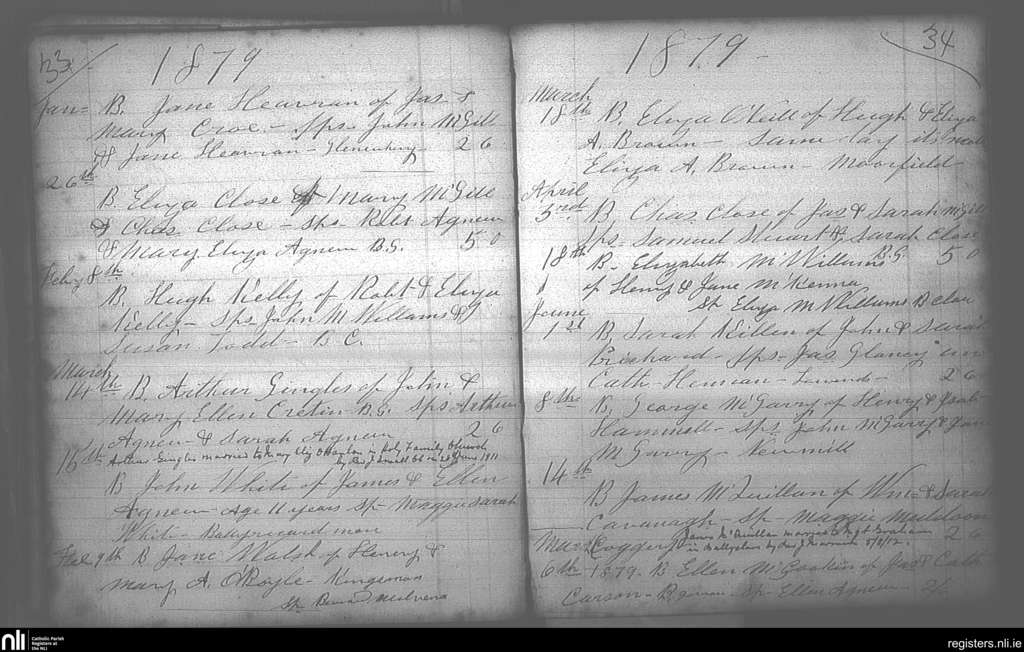 33
1879
Jan= B. Jane Heavran of Jas &
Mary Croe - Sps John McGill
& Jane Heavran - Glenwherry 2 6
26th
B. Eliza Close of Mary McGill
& Chas Close - Sps - Robt Agnew
& Mary Eliza Agnew B.G. 5 0
Feby 8th
B. Hugh Kelly of Robt & Eliza
Kelly - Sps John McWilliams &
Susan Todd - B C.
March
14th B. Arthur Gingles of John &
Mary Ellen B.G. Sps Arthur
Agnew & Sarah Agnew 2 6
Arthur Gingles married to Mary in Holy Family Church
by 1911
16th
B John White of James & Ellen
Agnew - Age 11 years - Sp - Maggie Sarah
White - more
Feb 9th B Jane Walsh of Henry &
Mary A. O'Boyle - Kingsmoss
Sp
34
1879
March
18th B. Eliza O'Neill of Hugh & Eliza
A. Brown - Same day its
Eliza A. Brown - Moorfield
April
3rd B. Chas Close of Jas & Sarah McGill
Sps - Samuel Stuart & Sarah Close
B.G. 5 0
18th B - Elizabeth McWilliams
of Henry & Jane McKenna
Sp Eliza McWilliams B
June
1st B. Sarah of John & Sarah
Prichard - Sps - Jas. Glancy
Cath. Heman - 2 6
8th B. George McGarry of Henry &
Hammell - Sps John McGarry & Jane
McGarry - Newmill
14th
B James McQuillan of Wm & Sarah
Cavanagh - Sp - Maggie Muldoon
2 6
James McQuillan married to
in Ballyclare by
March
6th 1879. B Ellen of Jas & Cath
Carson - Sp - Ellen Agnew - 2/6
nli
Catholic Parish
Registers at
the NLI
registers.nli.ie